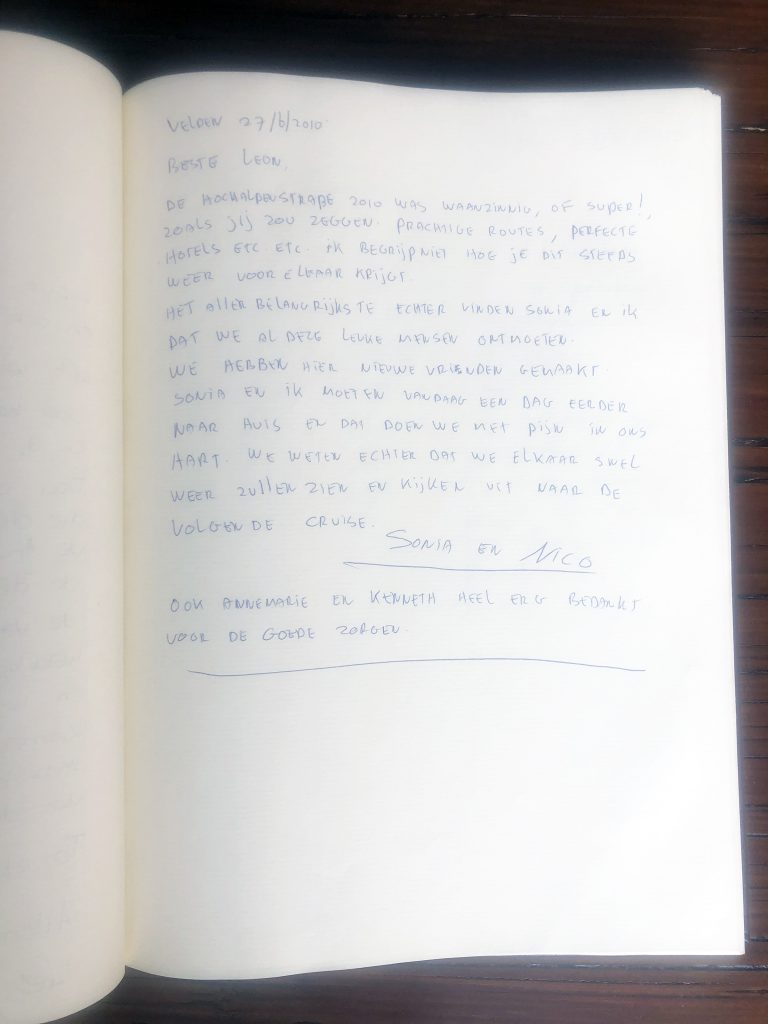 VELDEN 27/6/2010
BESTE LEON,
DE HOCHALPENSTRAßE 2010 WAS WAANZINNIG, OF SUPER!,
ZOALS JIJ ZOU ZEGGEN. PRACHTIGE ROUTES, PERFECTE
HOTELS ETC. ETC. IK BEGRIJP NIET HOE JE DIT STEEDS
WEER VOOR ELKAAR KRIJGT.
HET ALLER BELANGRIJKSTE ECHTER VINDEN SONIA EN IK
DAT WE AL DEZE LEUKE MENSEN ONTMOETEN.
WE HEBBEN HIER NIEUWE VRIENDEN GEMAAKT.
SONIA EN IK MOETEN VANDAAG EEN DAG EERDER
NAAR HUIS EN DAT DOEN WE MET PIJN IN ONS
HART. WE WETEN ECHTER DAT WE ELKAAR SNEL
WEER ZULLEN ZIEN EN KIJKEN UIT NAAR DE
VOLGENDE CRUISE.
SONIA EN NICO
OOK ANNEMARIE EN KENNETH HEEL ERG BEDANKT
VOOR DE GOEDE ZORGEN.